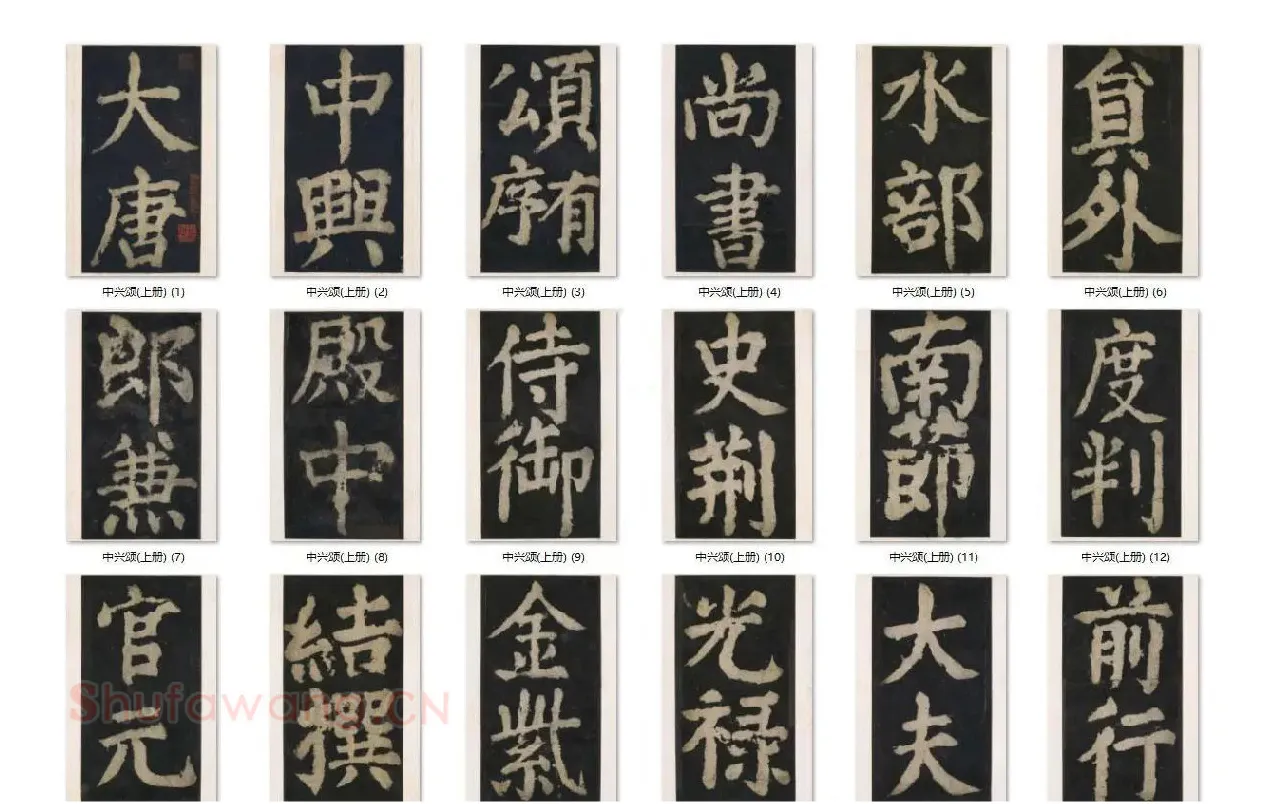 大唐
中興
頌有序
尚書
水部
貟外
中兴颂(上册) (1)
中兴颂(上册) (2)
中兴颂(上册) (3)
中兴颂(上册) (4)
中兴颂(上册) (5)
中兴颂(上册) (6)
郎兼
殿中
侍御
史荆
南節
度判
中兴颂(上册) (7)
中兴颂(上册) (8)
中兴颂(上册) (9)
中兴颂(上册) (10)
中兴颂(上册) (11)
中兴颂(上册) (12)
官元
結撰
金紫
光禄
大夫
前行
Shufawang.CN